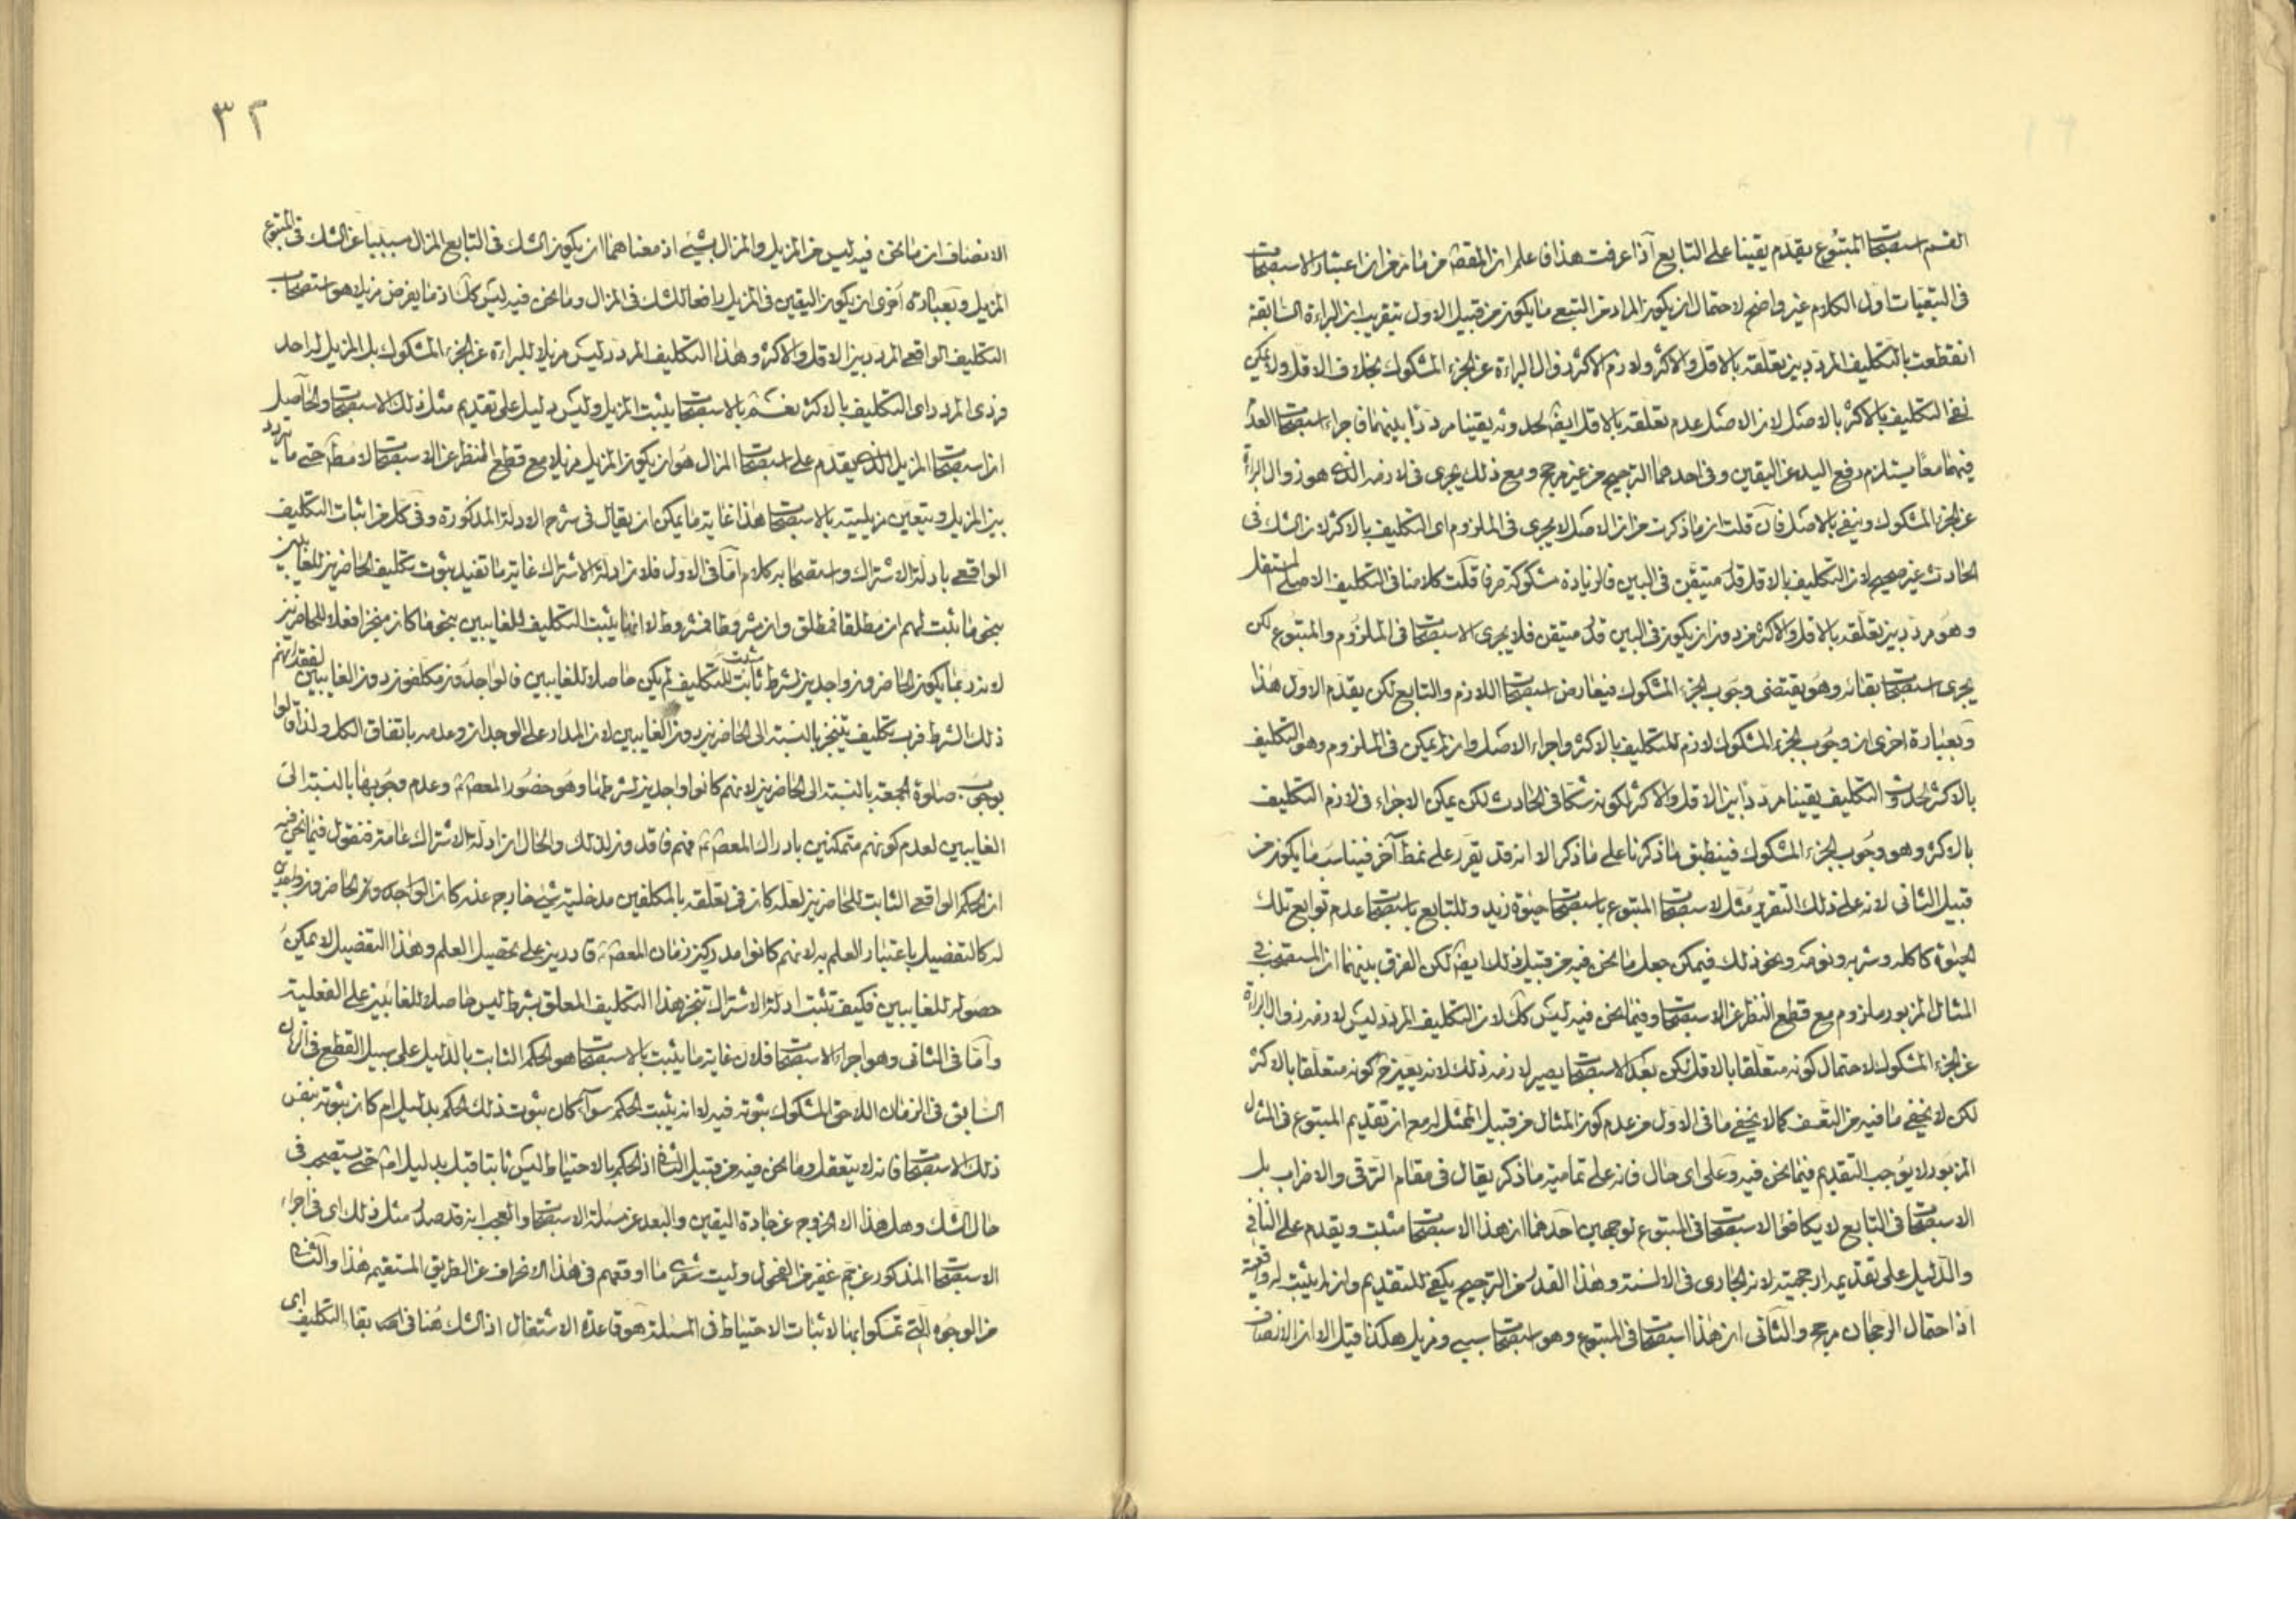 القسم استصحاب المتبوع يقدم يقينا على التابع اذا عرفت هذا فاعلم ان المقصود من ما مر من ان اعتبار الاستصحاب
فى التبعيات اول الكلام غير واضح لاحتمال ان يكون المراد من التبع ما يكون من قبيل الاول بتقريب ان البراءة السابقة
انقطعت بالتكليف المردد بين تعلقه بالاقل والاكثر ولازم الاكثر زوال البراءة عن الجزء المشكوك بخلاف الاقل ولا يمكن
نفى التكليف بالاكثر بالاصل لان الاصل عدم تعلقه بالاقل ايضا لحدوثه يقينا مرددا بينهما فاجراء استصحاب العدم
فيهما معا يستلزم رفع اليد عن اليقين وفى احدهما الترجيح من غير مرجح ومع ذلك يجرى فى لازمه الذى هو زوال البراءة
عن الجزء المشكوك وينفى بالاصل فان قلت ان ما ذكرت من ان الاصل لا يجرى فى الملزوم اى التكليف بالاكثر لان الشك فى
الحادث غير صحيح لان التكليف بالاقل قدر متيقن فى البين فالزيادة مشكوكة صرفا قلت كلامنا فى التكليف الاصلى المستقل
وهو مردد بين تعلقه بالاقل والاكثر من دون ان يكون فى البين قدر متيقن فلا يجرى الاستصحاب فى الملزوم والمتبوع لكن
يجرى استصحاب بقائه وهو يقتضى وجوب الجزء المشكوك فيعارض استصحاب اللازم والتابع لكن يقدم الاول هذا
وبعبارة اخرى ان وجوب الجزء المشكوك لازم للتكليف بالاكثر واجراء الاصل وان لم يمكن فى الملزوم وهو التكليف
بالاكثر لحدوث التكليف يقينا مرددا بين الاقل والاكثر لكونه شكا فى الحادث لكن يمكن الاجراء فى لازم التكليف
بالاكثر وهو وجوب الجزء المشكوك فينطبق ما ذكرنا على ما ذكر الا انه قد يقرر على نمط آخر فيناسب ما يكون من
قبيل الثانى لانه على ذلك التقرير مثل لاستصحاب المتبوع باستصحاب حيوة زيد وللتابع باستصحاب عدم توابع تلك
الحيوة كاكله وشربه ونومه ونحو ذلك فيمكن جعل ما نحن فيه من قبيل ذلك ايضا لكن الفرق بينهما ان المستصحب فى
المثال المزبور ملزوم مع قطع النظر عن الاستصحاب وفيما نحن فيه ليس كك لان التكليف المردد ليس لازمه زوال البراءة
عن الجزء المشكوك لاحتمال كونه متعلقا بالاقل لكن بعد الاستصحاب يصير لازمه ذلك لانه يعين ح كونه متعلقا بالاكثر
لكن لا يخفى ما فيه من التعسف كما لا يخفى ما فى الاول من عدم كون المثال من قبيل الممثل له مع ان تقديم المتبوع فى المثال
المزبور لا يوجب التقديم فيما نحن فيه وعلى اى حال فانه على تمامية ما ذكر يقال فى مقام الترقى والاضراب بل
الاستصحاب فى التابع لا يكافئ الاستصحاب فى المتبوع لوجهين احدهما ان هذا الاستصحاب مثبت ويقدم على النافى
والدليل على تقديمه ارجحيته لانه الجارى فى الالسنة وهذا القدر من الترجيح يكفى للتقديم وان لم يثبت له واقعية
اذ احتمال الرجحان مرجح والثانى ان هذا استصحاب فى المتبوع وهو استصحاب سببى ومزيل هكذا قيل الا ان الانصاف
٣٢
الانصاف ان ما نحن فيه ليس من المزيل والمزال بشىء اذ معناهما ان يكون الشك فى التابع المزال مسببا عن الشك فى المتبوع
المزيل وبعبارة اخرى ان يكون اليقين فى المزيل رافعا للشك فى المزال وما نحن فيه ليس كك اذ ما يفرض مزيلا هو استصحاب
التكليف الواقعى المردد بين الاقل والاكثر وهذا التكليف المردد ليس مزيلا للبراءة عن الجزء المشكوك بل المزيل له احد
فردى المردد اى التكليف بالاكثر نعم بالاستصحاب يثبت المزيل وليس دليل على تقديم مثل ذلك الاستصحاب والحاصل
ان استصحاب المزيل الذى يقدم على استصحاب المزال هو ان يكون المزيل مزيلا مع قطع النظر عن الاستصحاب لا مط حتى ما يردد
بين المزيل ويتعين مزيليته بالاستصحاب هذا غاية ما يمكن ان يقال فى شرح الادلة المذكورة وفى كل من اثبات التكليف
الواقعى بادلة الاشتراك واستصحابه كلام اما فى الاول فلان ادلة الاشتراك غاية ما تفيد ثبوت تكليف الحاضرين للغايبين
بنحو ما يثبت لهم ان مطلقا فمطلق وان مشروطا فمشروط لا انها يثبت التكليف للغايبين بنحو ما كان منجزا فعلا للحاضرين
لانه ربما يكون الحاضرون واجدين لشرط ثابت ثبت للتكليف لم يكن حاصلا للغايبين فالواجدون مكلفون دون الغايبين لفقدانهم
ذلك الشرط فرب تكليف يتنجز بالنسبة الى الحاضرين دون الغايبين لان المدار على الوجدان وعدمه باتفاق الكل ولذا قالوا
بوجوب صلوة الجمعة بالنسبة الى الحاضرين لانهم كانوا واجدين لشرطها وهو حضور المعصوم وعدم وجوبها بالنسبة الى
الغايبين لعدم كونهم متمكنين بادراك المعصوم فهم فاقدون لذلك والحال ان ادلة الاشتراك عامة فنقول فيما نحن فيه
ان الحكم الواقعى الثابت للحاضرين لعله كان فى تعلقه بالمكلفين مدخلية شىء خارج عنه كان الواجد له الحاضرون واجدين
له كالتفصيل باعتبار العلم به لانهم كانوا مدركين زمان المعصوم قادرين على تحصيل العلم وهذا التفصيل لا يمكن
حصوله للغايبين فكيف تثبت ادلة الاشتراك تنجز هذا التكليف المعلق بشرط ليس حاصلا للغايبين على الفعلية
واما فى الثانى وهو اجراء الاستصحاب فلان غاية ما يثبت بالاستصحاب هو الحكم الثابت بالدليل على سبيل القطع فى الزمان
السابق فى الزمان اللاحق المشكوك ثبوته فيه لا انه يثبت الحكم سواء كان ثبوت ذلك الحكم بدليل ام كان ثبوته بنفس
ذلك الاستصحاب فانه لا يتعقل وما نحن فيه من قبيل الثانى اذ الحكم بالاحتياط ليس ثابتا قبل بدليل اصلا حتى يستصحب فى
حال الشك وهل هذا الا الخروج عن جادة اليقين والبعد عن مسئلة الاستصحاب والعجب انه قد صدر مثل ذلك اى فى اجراء
الاستصحاب المذكور عن جم غفير من الفحول وليت شعرى ما اوقعهم فى هذا الانحراف عن الطريق المستقيم هذا والثانى
من الوجوه التى تمسكوا بها لاثبات الاحتياط فى المسئلة هو قاعدة الاشتغال اذ الشك هنا فى اصل بقاء التكليف اى